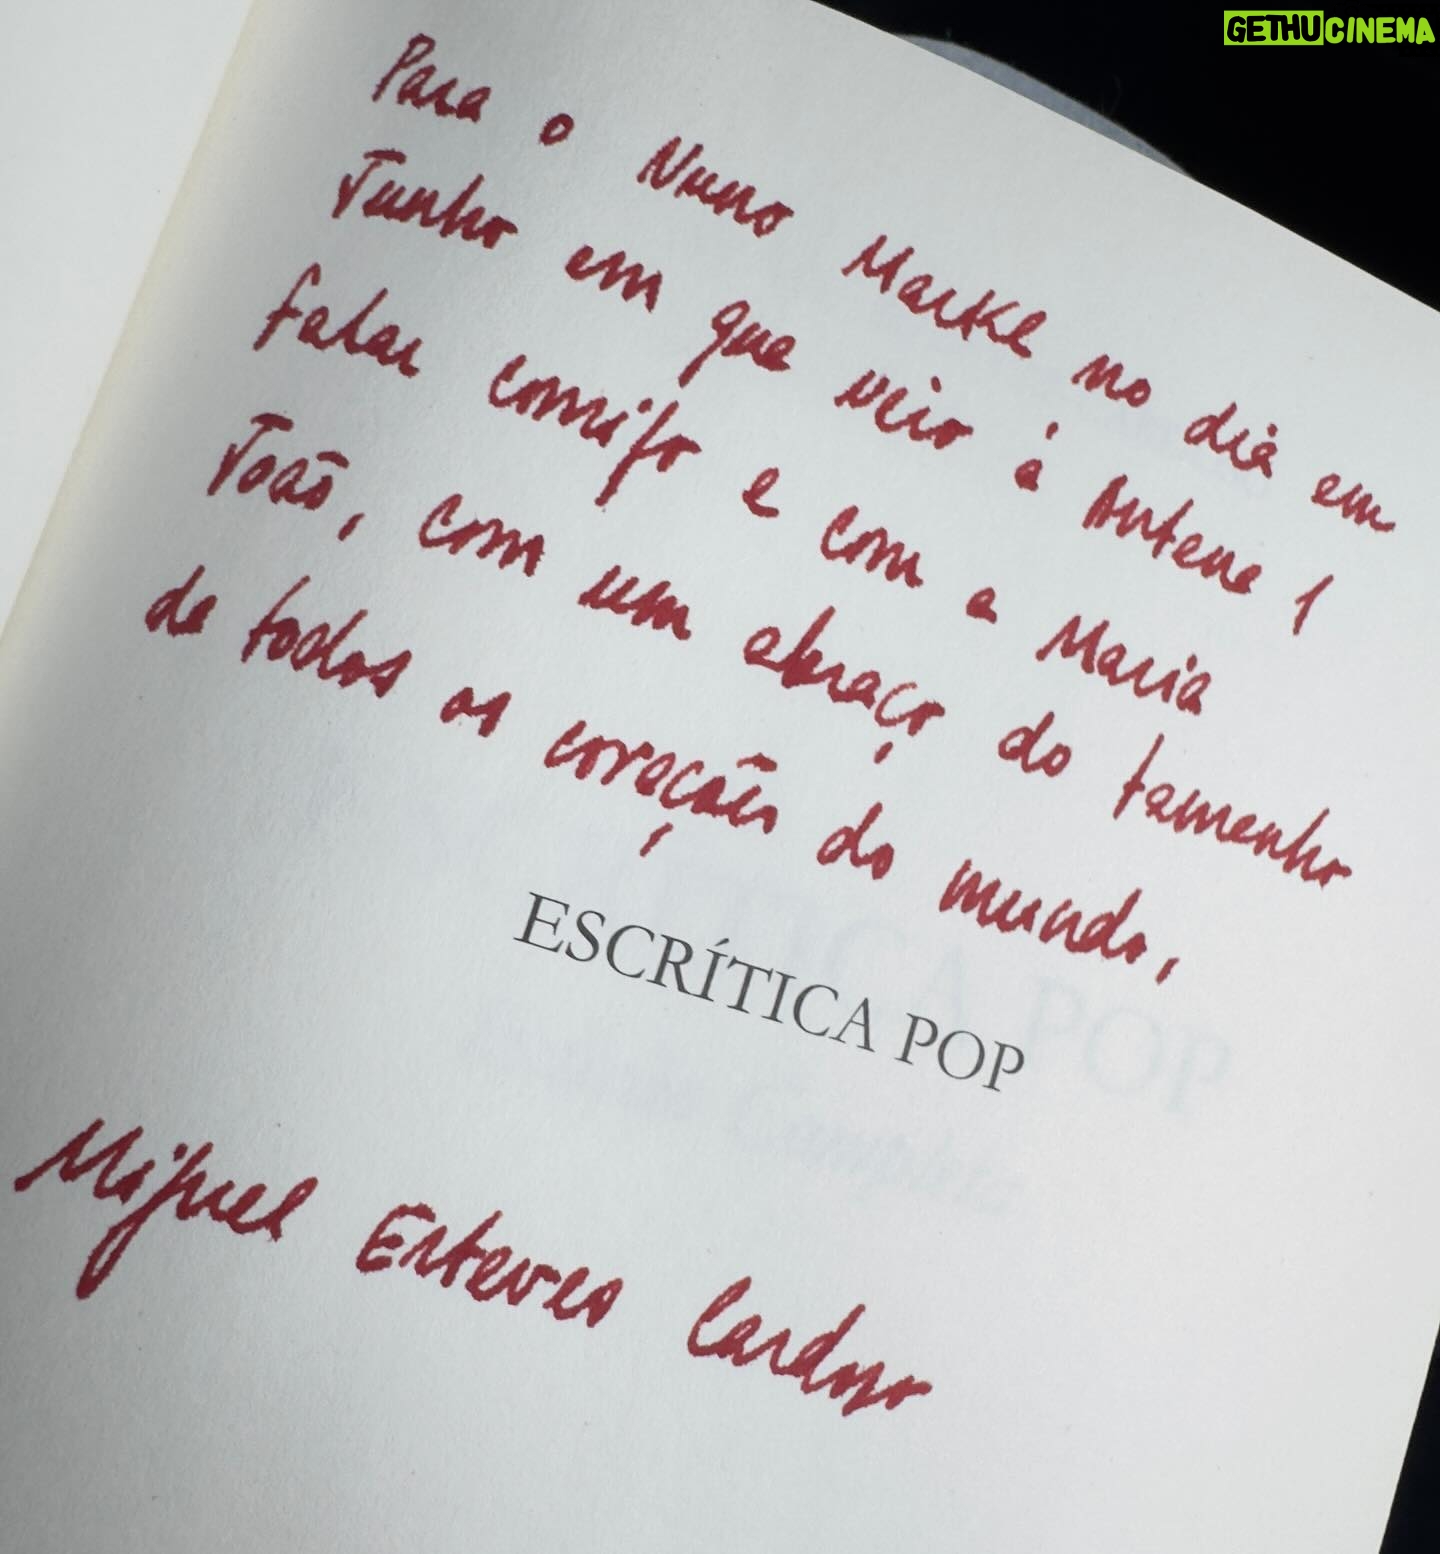 GETHUCINEMA
Para o Nuno Markl no dia em
Junho em que veio à Antena 1
falar comigo e com a Maria
João, com um abraço do tamanho
de todos os corações do mundo,
ESCRÍTICA POP
Miguel Esteves Cardoso